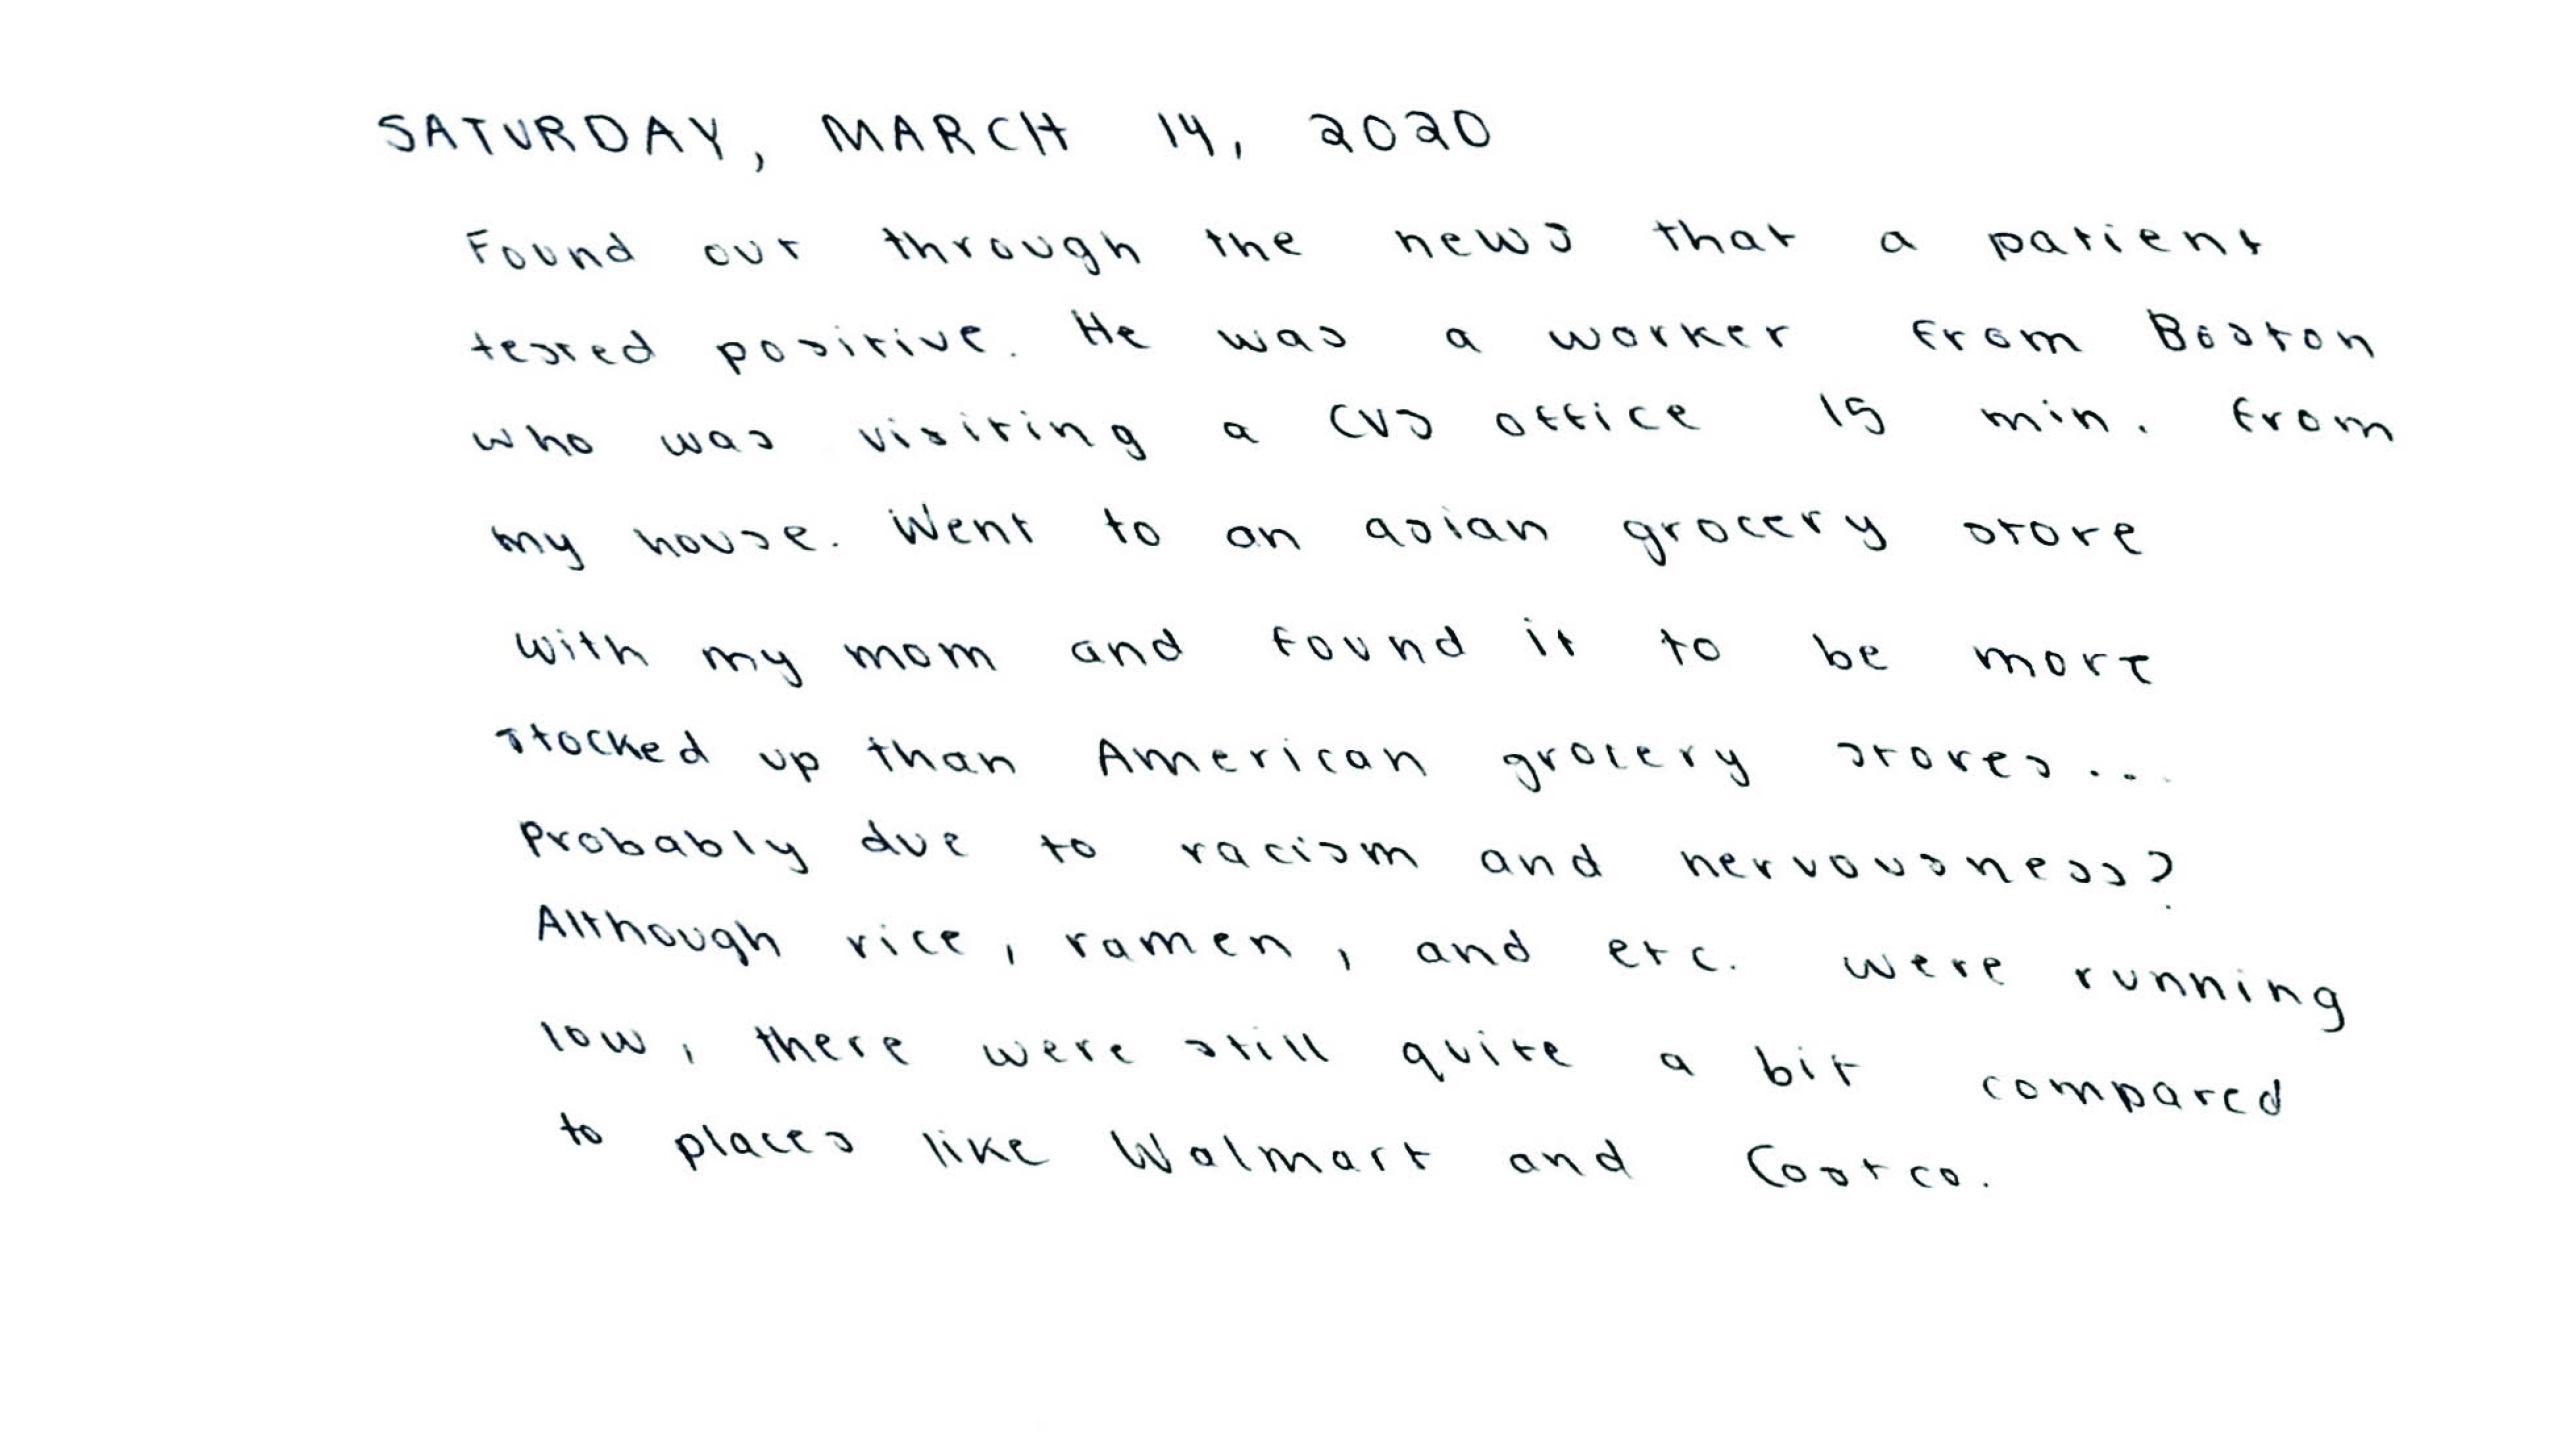 SATURDAY, MARCH 14, 2020
Found out through the news that a patient
tested positive. He was a worker from Boston
who was visiting a CVS office 15 min. from
my house. Went to an asian grocery store
with my mom and found it to be more
stocked up than American grocery stores...
Probably due to racism and nervousness?
Although rice, ramen, and etc. were running
low, there were still quite a bit compared
to places like Walmart and Costco.